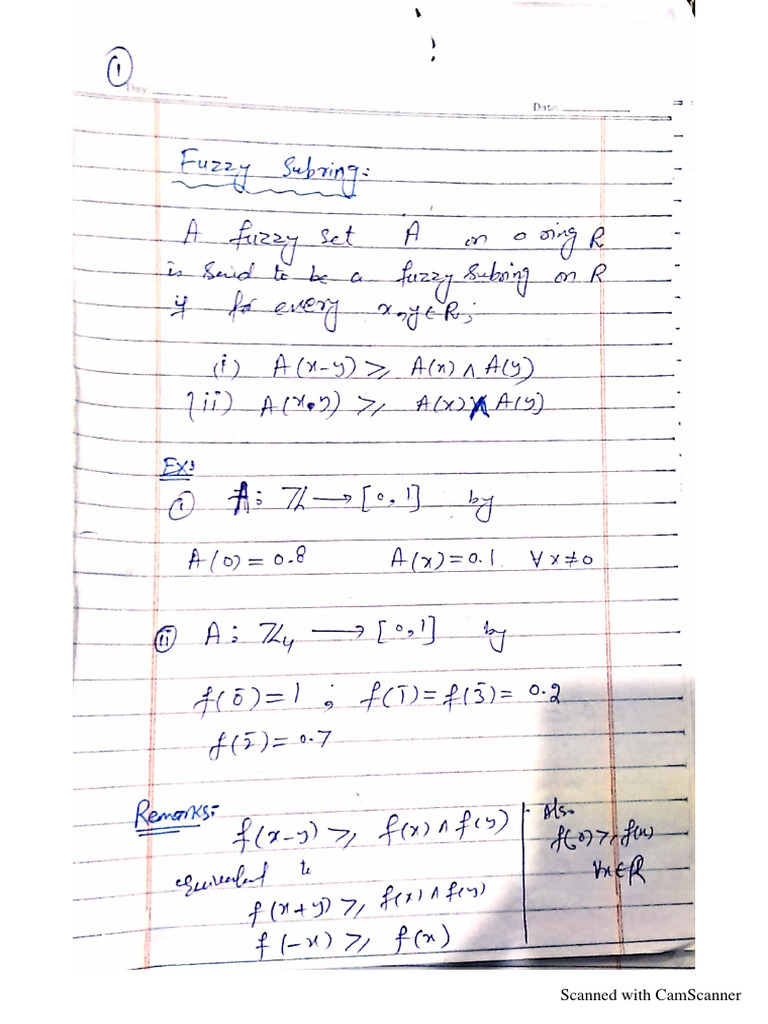 ①
Day:
Date:
Fuzzy Subring:
A fuzzy set A on a ring R
is said to be a fuzzy subring on R
if for every x,y∈R;
(i) A(x-y) ⩾ A(x) ∧ A(y)
(ii) A(x.y) ⩾ A(x) ∧ A(y)
Ex:
① A: ℤ → [0,1] by
A(0) = 0.8 A(x) = 0.1 ∀ x≠0
ⓘⓘ A: ℤ₄ → [0,1] by
f(0̄) = 1 ; f(1̄) = f(3̄) = 0.2
f(2̄) = 0.7
Remarks:
f(x-y) ⩾ f(x) ∧ f(y)
equivalent to
f(x+y) ⩾ f(x) ∧ f(y)
f(-x) ⩾ f(x)
Also
f(0) ⩾ f(x)
∀x∈R
Scanned with CamScanner